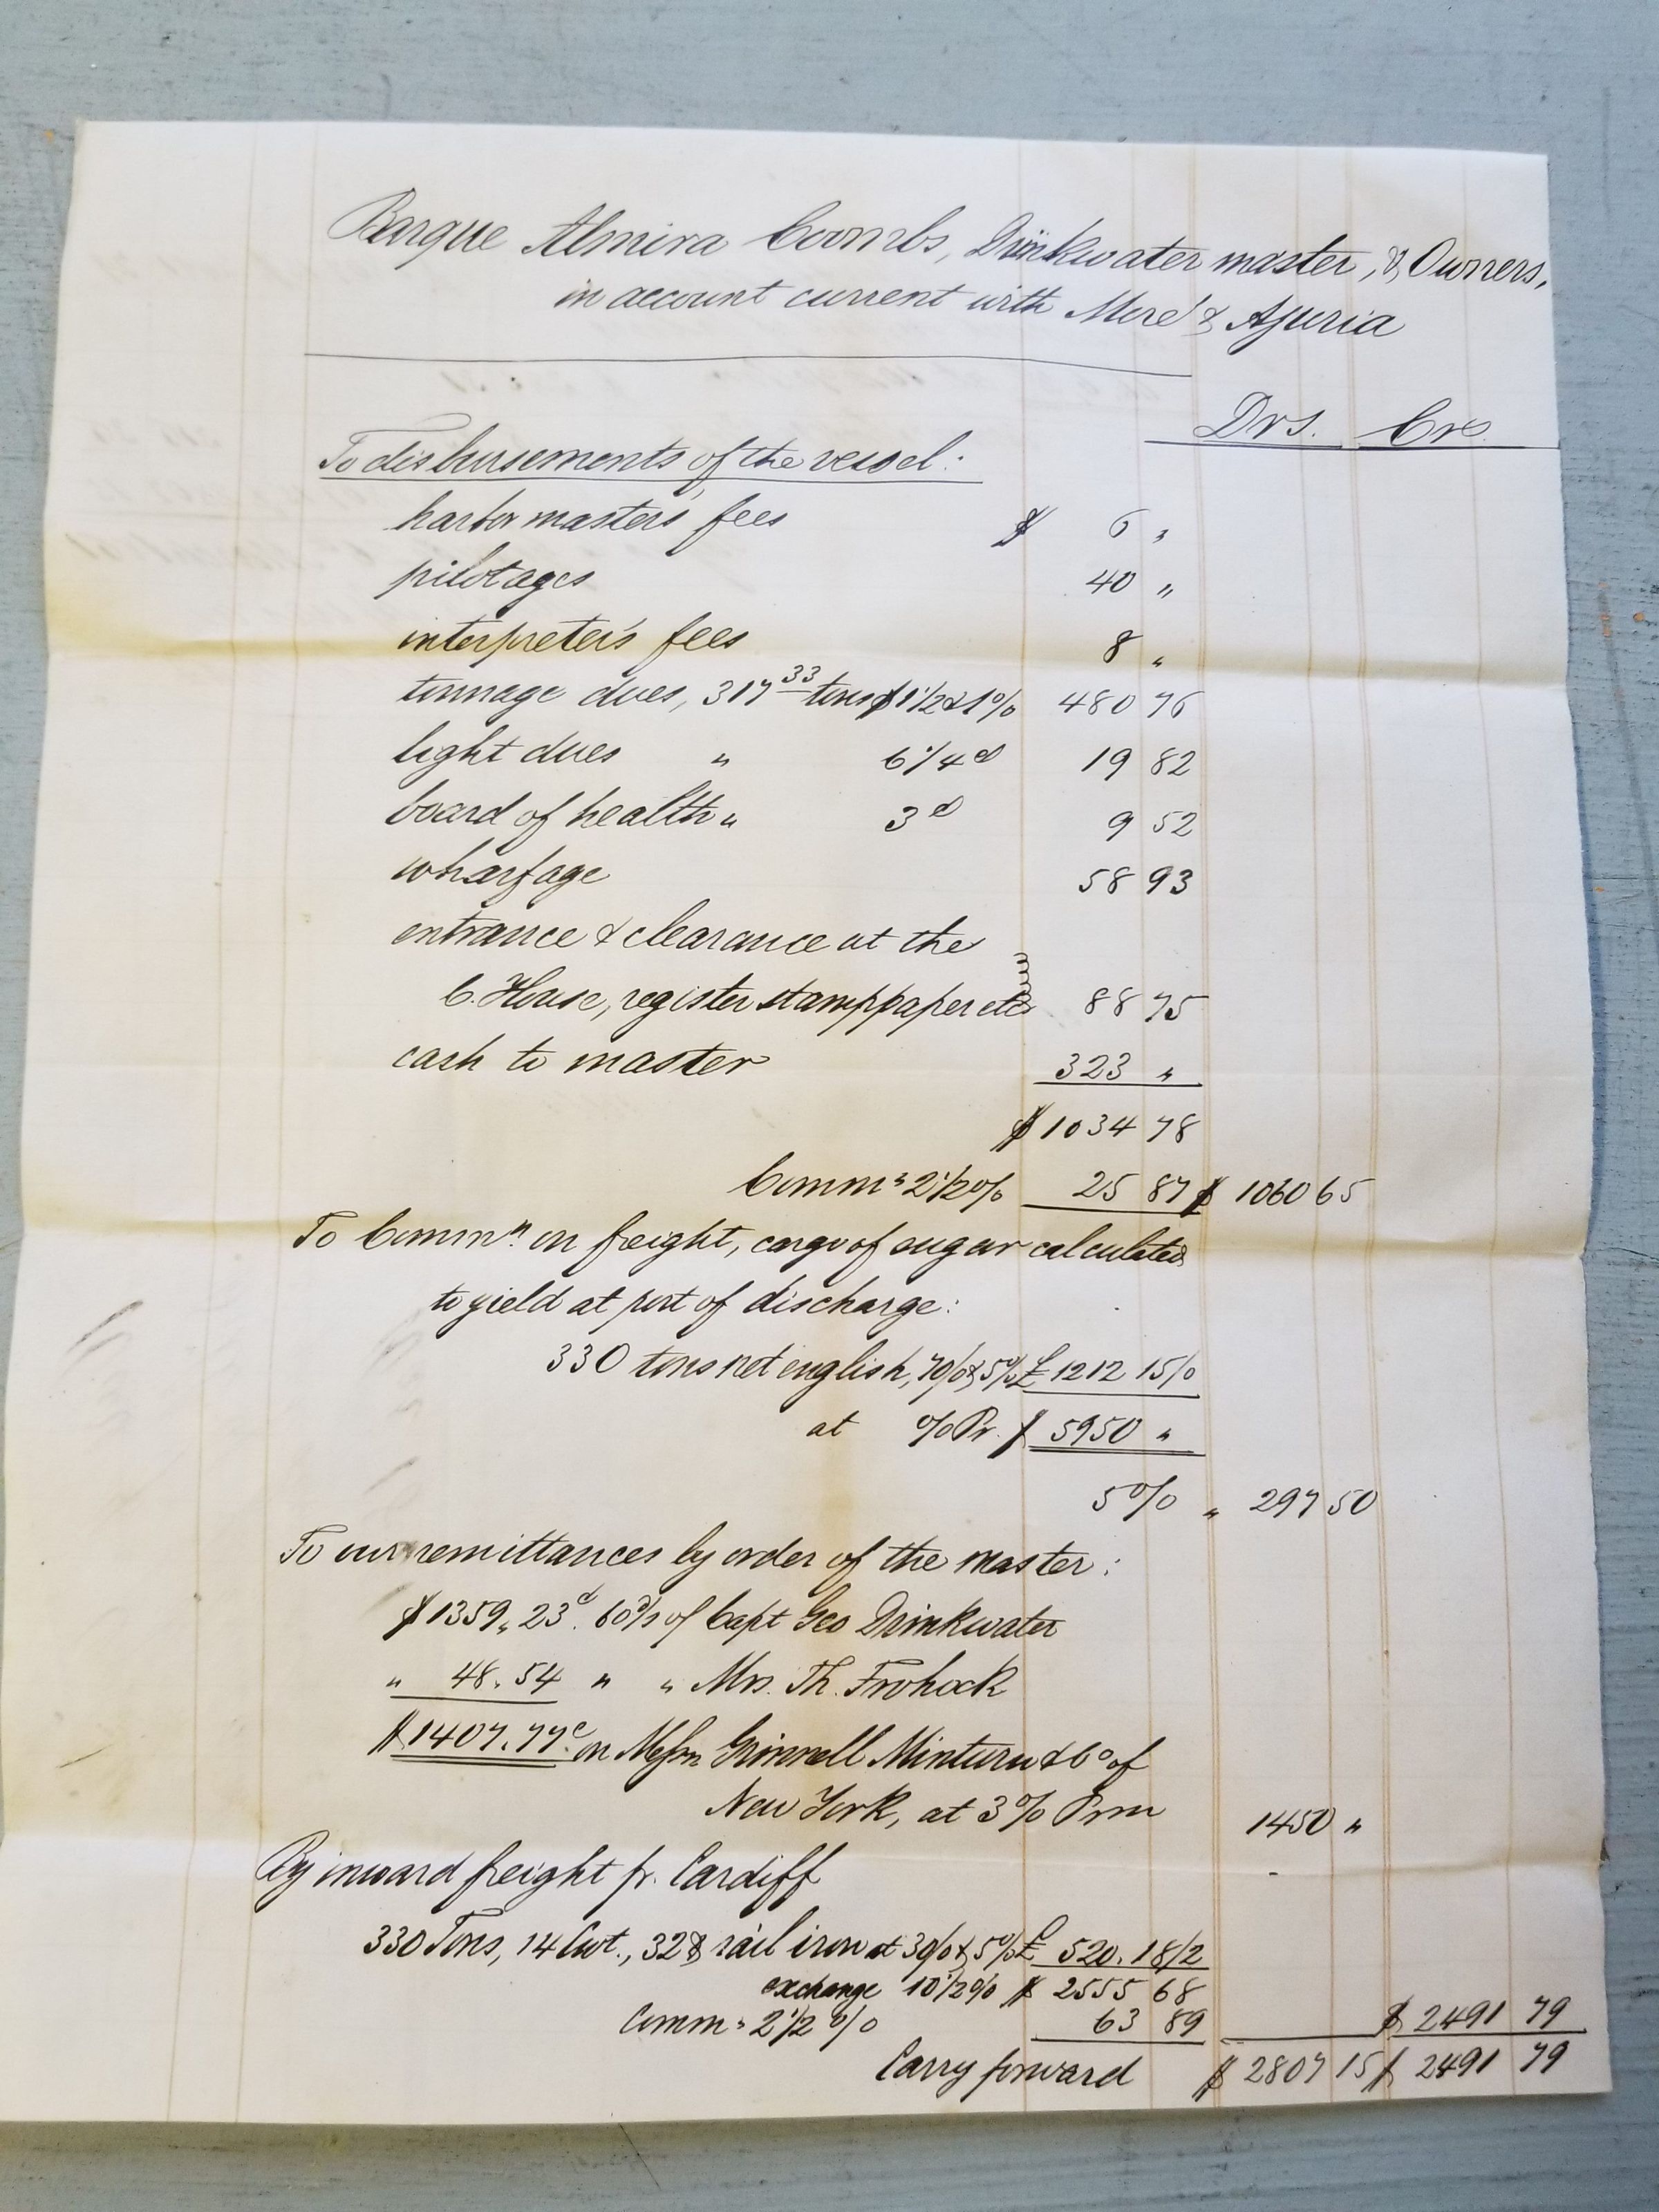 Barque Almira Coombs, Drinkwater master, & Owners,
in account current with Moré & Ajuria
Drs. Crs.
To disbursements of the vessel:
harbor masters fees $ 6 "
pilotages 40 "
interpreter's fees 8 "
tonnage dues, 317 33 tons $1 1/2 & 1% 480 76
light dues " 6 1/4 d 19 82
board of health " 3 d 9 52
wharfage 58 93
entrance & clearance at the
C. House, register stamppaper etc 88 75
cash to master 323 "
$ 1034 78
Comm: 2 1/2 % 25 87 $ 1060 65
To Commn. on freight, cargo of sugar calculated
to yield at port of discharge:
330 tons net english, 70/ & 5% £ 1212 15/0
at % Pr. $ 5950 "
5% " 297 50
To our remittances by order of the master:
$ 1359, 23 c. 60 d/s of Capt Geo Drinkwater
" 48. 54 " " Mrs. Th. Frohock
$ 1407. 77 c. on Messrs Grinnell Minturn & Co of
New York, at 3% Prm 1450 "
By inward freight fr. Cardiff
330 Tons, 14 Cwt., 32 ℔ rail iron at 30/ & 5% £ 520. 18/2
exchange 10 1/2 % $ 2555 68
Comm: 2 1/2 % 63 89 $ 2491 79
Carry forward $ 2807 15 $ 2491 79